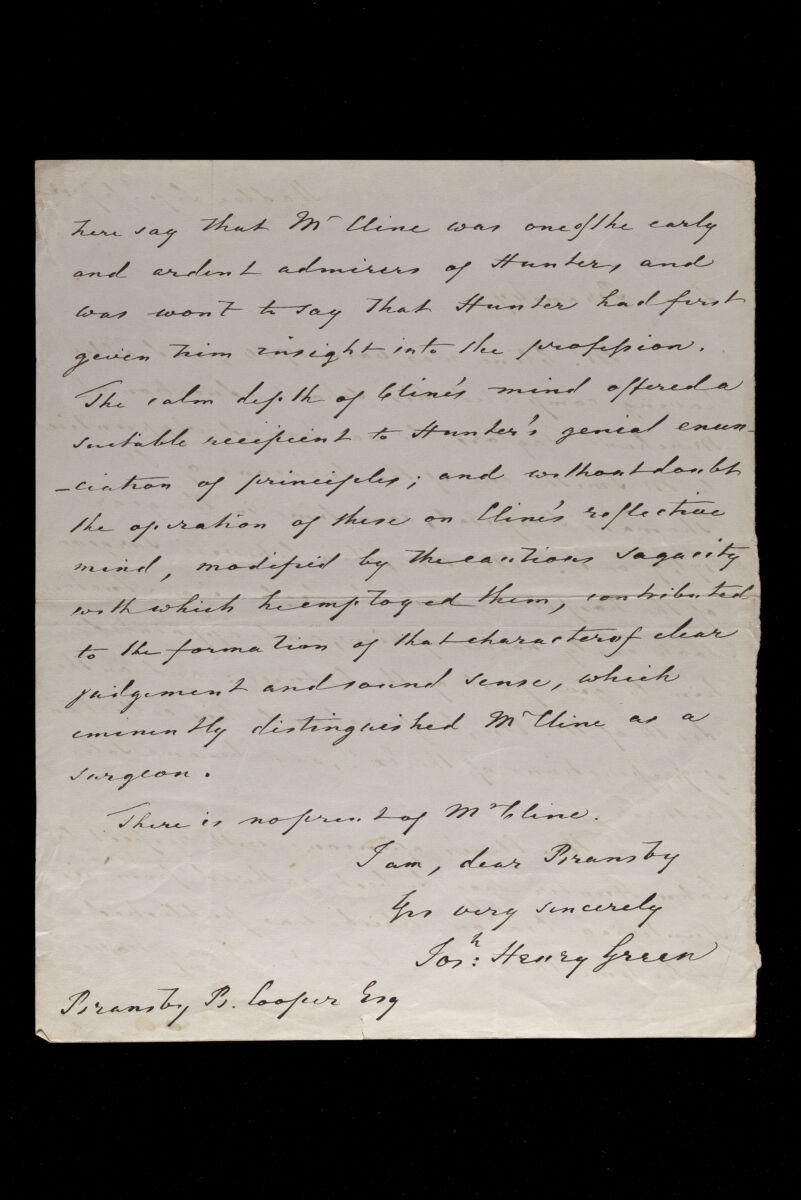 here say that Mr Cline was one of the early
and ardent admirers of Hunter, and
was wont to say that Hunter had first
given him insight into the profession.
The calm depth of Cline's mind offered a
suitable recipient to Hunter's genial enun-
-ciation of principles; and without doubt
the operation of these on Cline's reflective
mind, modified by the cautious sagacity
with which he employed them, contributed
to the formation of that character of clear
judgement and sound sense, which
eminently distinguished Mr Cline as a
surgeon.
There is no print of Mr Cline.
I am, dear Bransby
Yrs very sincerely
Josh: Henry Green
Bransby B. Cooper Esq